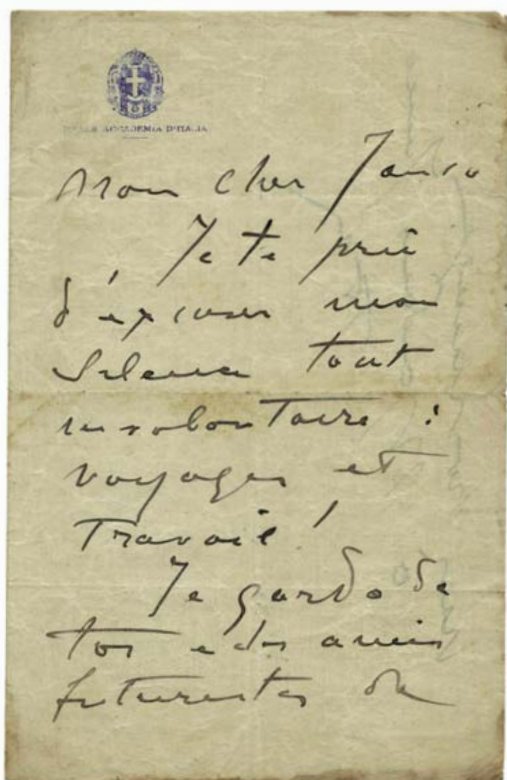 REALE ACCADEMIA D'ITALIA
Mon cher Janco
Je te prie
d'excuser mon
silence tout
involontaire :
voyages et
Travail !
Je garde de
toi e des amis
futuristes de